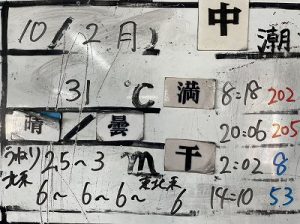 10/2 月) 中 潮
31 ℃ 満 8:18 202
晴/曇 20:06 205
うねり 2.5~3 m 干 2:02 8
北東 6~6~6~東北東 6 14:10 53